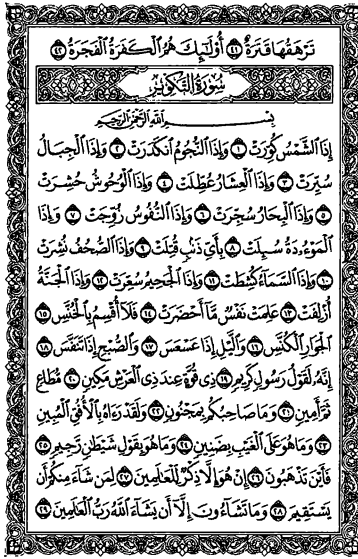 تَرْهَقُهَا قَتَرَةٌ ٤١ أُو۟لَٰٓئِكَ هُمُ ٱلْكَفَرَةُ ٱلْفَجَرَةُ ٤٢
سُورَةُ التَّكْوِيرِ
بِسْمِ ٱللَّهِ ٱلرَّحْمَٰنِ ٱلرَّحِيمِ
إِذَا ٱلشَّمْسُ كُوِّرَتْ ١ وَإِذَا ٱلنُّجُومُ ٱنكَدَرَتْ ٢ وَإِذَا ٱلْجِبَالُ
سُيِّرَتْ ٣ وَإِذَا ٱلْعِشَارُ عُطِّلَتْ ٤ وَإِذَا ٱلْوُحُوشُ حُشِرَتْ
٥ وَإِذَا ٱلْبِحَارُ سُجِّرَتْ ٦ وَإِذَا ٱلنُّفُوسُ زُوِّجَتْ ٧ وَإِذَا
ٱلْمَوْءُۥدَةُ سُئِلَتْ ٨ بِأَىِّ ذَنۢبٍ قُتِلَتْ ٩ وَإِذَا ٱلصُّحُفُ نُشِرَتْ
١٠ وَإِذَا ٱلسَّمَآءُ كُشِطَتْ ١١ وَإِذَا ٱلْجَحِيمُ سُعِّرَتْ ١٢ وَإِذَا ٱلْجَنَّةُ
أُزْلِفَتْ ١٣ عَلِمَتْ نَفْسٌ مَّآ أَحْضَرَتْ ١٤ فَلَآ أُقْسِمُ بِٱلْخُنَّسِ ١٥
ٱلْجَوَارِ ٱلْكُنَّسِ ١٦ وَٱلَّيْلِ إِذَا عَسْعَسَ ١٧ وَٱلصُّبْحِ إِذَا تَنَفَّسَ ١٨
إِنَّهُۥ لَقَوْلُ رَسُولٍ كَرِيمٍ ١٩ ذِى قُوَّةٍ عِندَ ذِى ٱلْعَرْشِ مَكِينٍ ٢٠ مُّطَاعٍ
ثَمَّ أَمِينٍ ٢١ وَمَا صَاحِبُكُم بِمَجْنُونٍ ٢٢ وَلَقَدْ رَءَاهُ بِٱلْأُفُقِ ٱلْمُبِينِ
٢٣ وَمَا هُوَ عَلَى ٱلْغَيْبِ بِضَنِينٍ ٢٤ وَمَا هُوَ بِقَوْلِ شَيْطَٰنٍ رَّجِيمٍ ٢٥
فَأَيْنَ تَذْهَبُونَ ٢٦ إِنْ هُوَ إِلَّا ذِكْرٌ لِّلْعَٰلَمِينَ ٢٧ لِمَن شَآءَ مِنكُمْ أَن
يَسْتَقِيمَ ٢٨ وَمَا تَشَآءُونَ إِلَّآ أَن يَشَآءَ ٱللَّهُ رَبُّ ٱلْعَٰلَمِينَ ٢٩